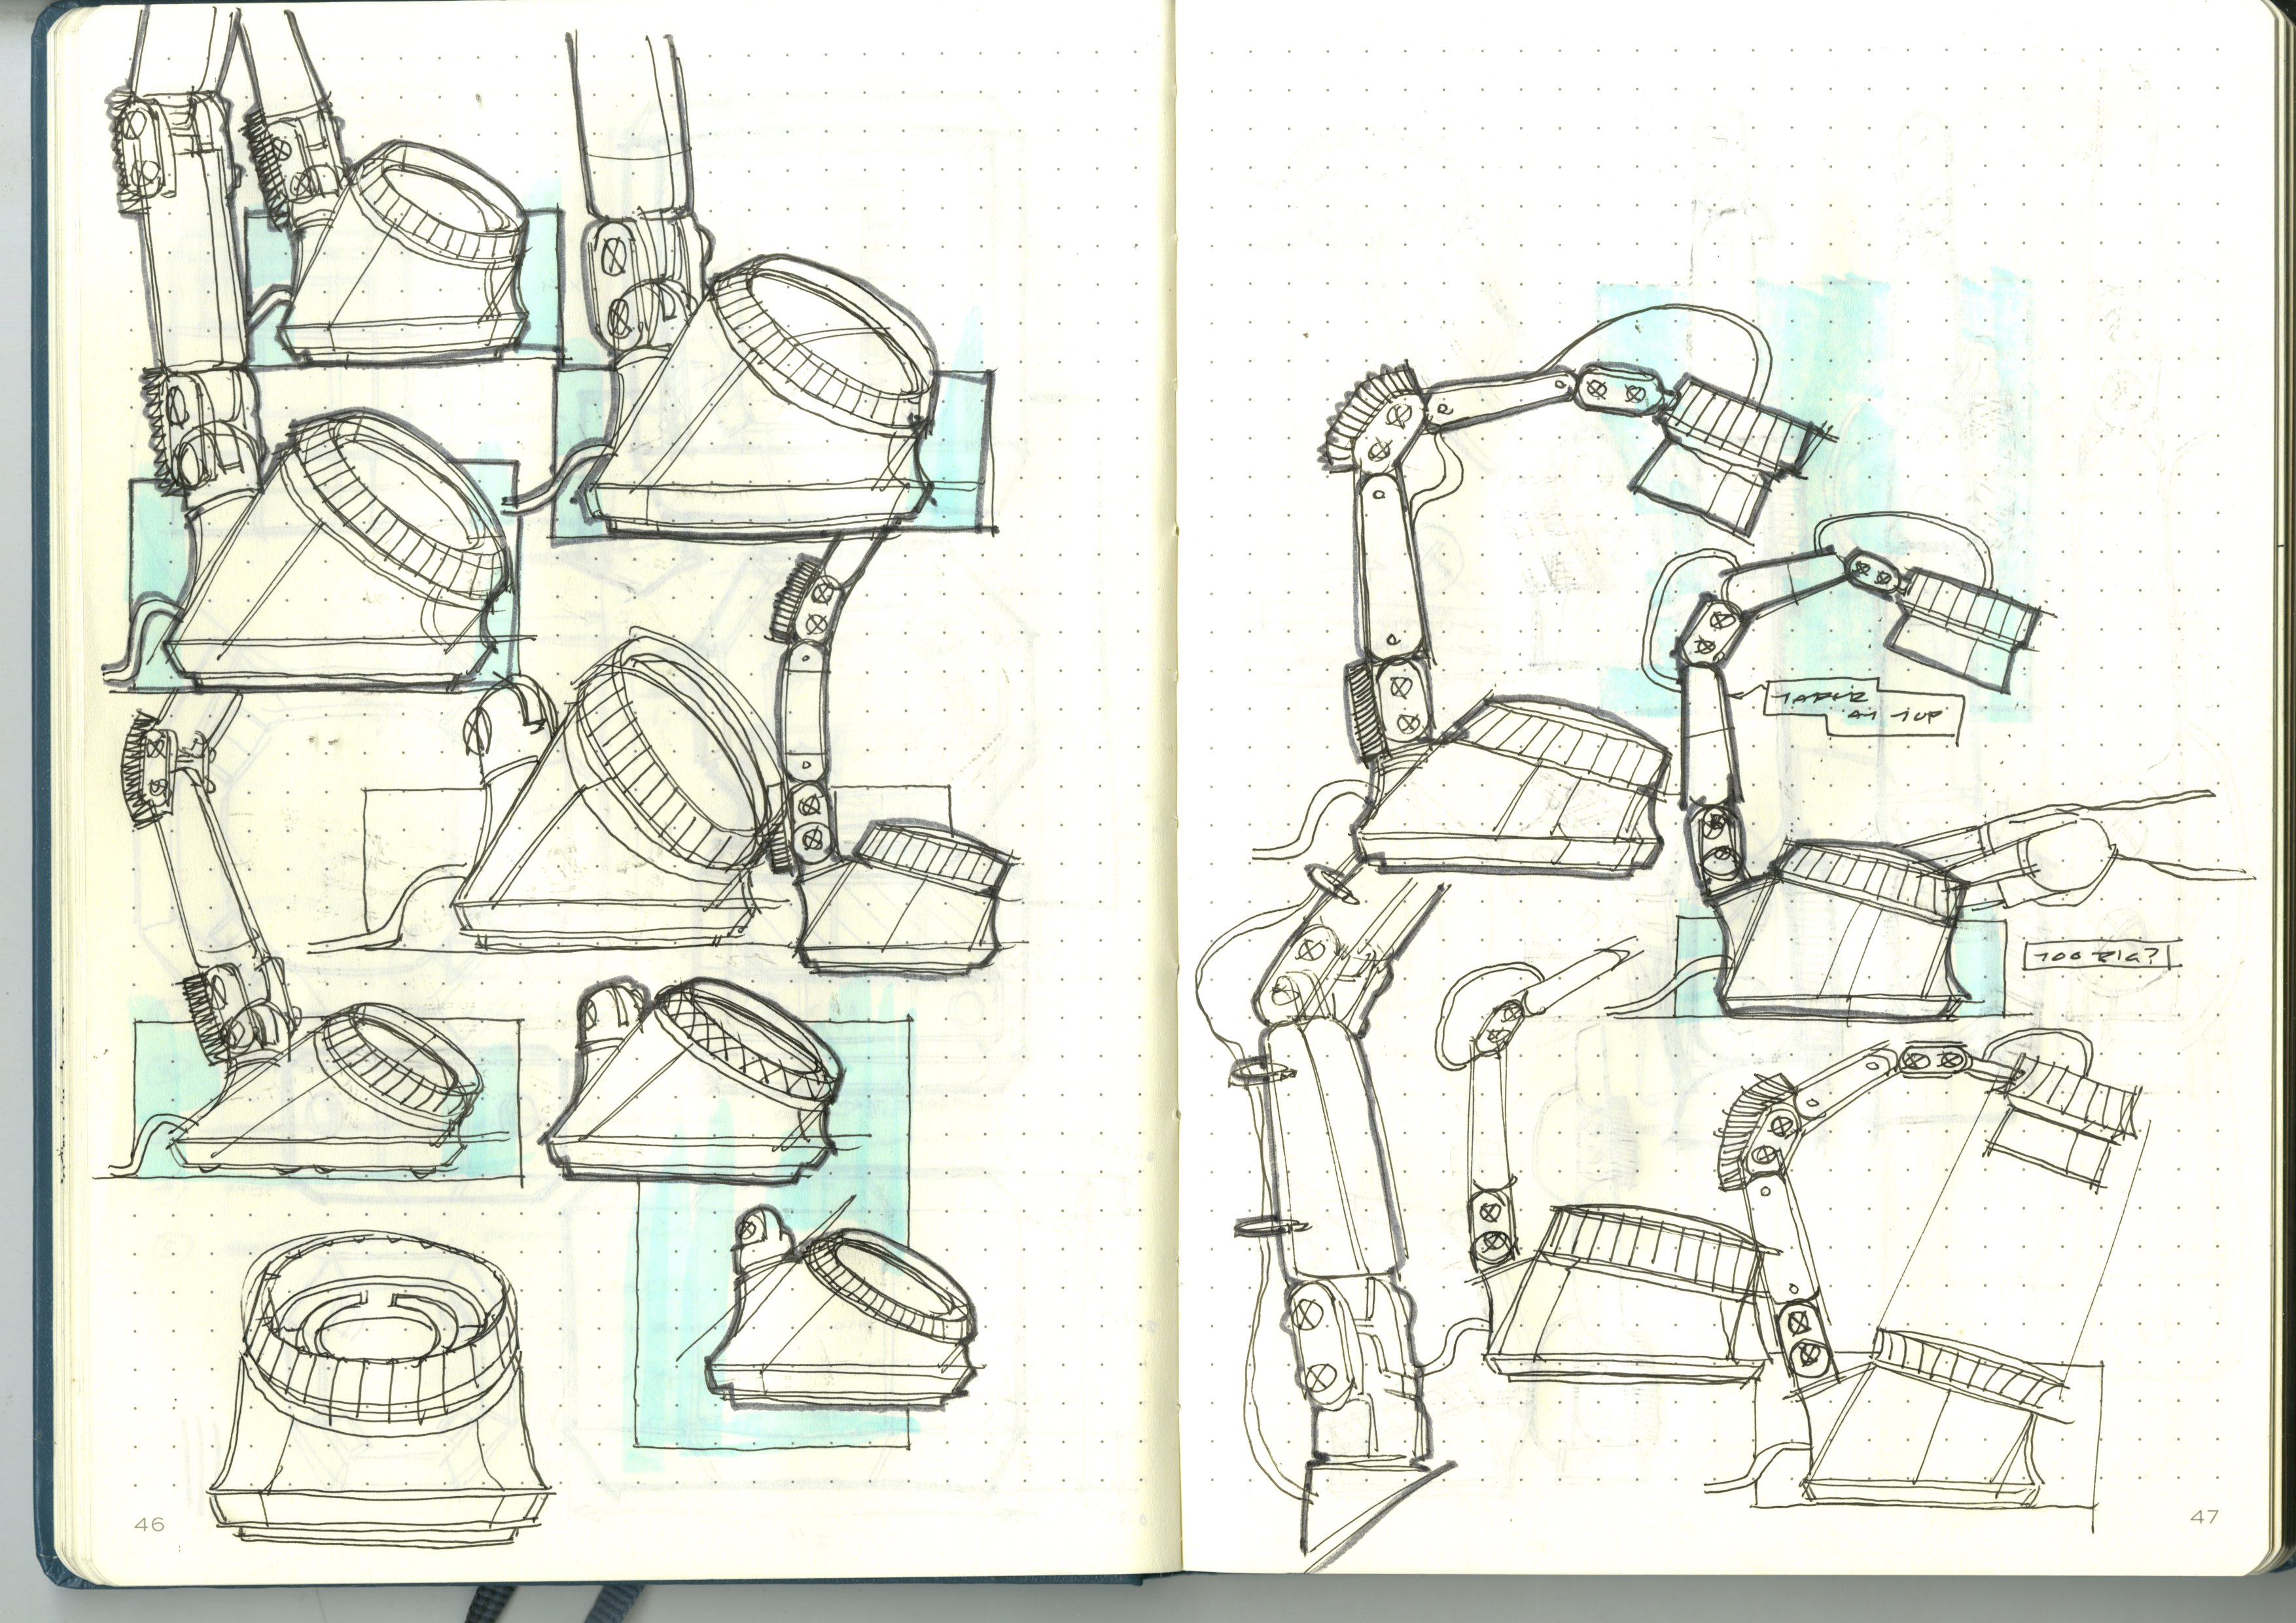 TAPER
AT TOP
TOO BIG?
46
47